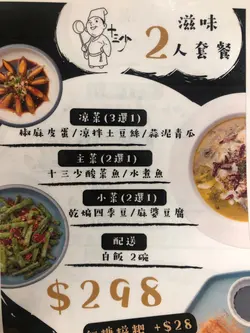 十三少
滋味
2人套餐
凉菜(3選1)
椒麻皮蛋/凉拌土豆絲/蒜泥青瓜
主菜(2選1)
十三少酸菜魚/水煮魚
小菜(2選1)
乾煸四季豆/麻婆豆腐
配送
白飯 2碗
$298
+$28